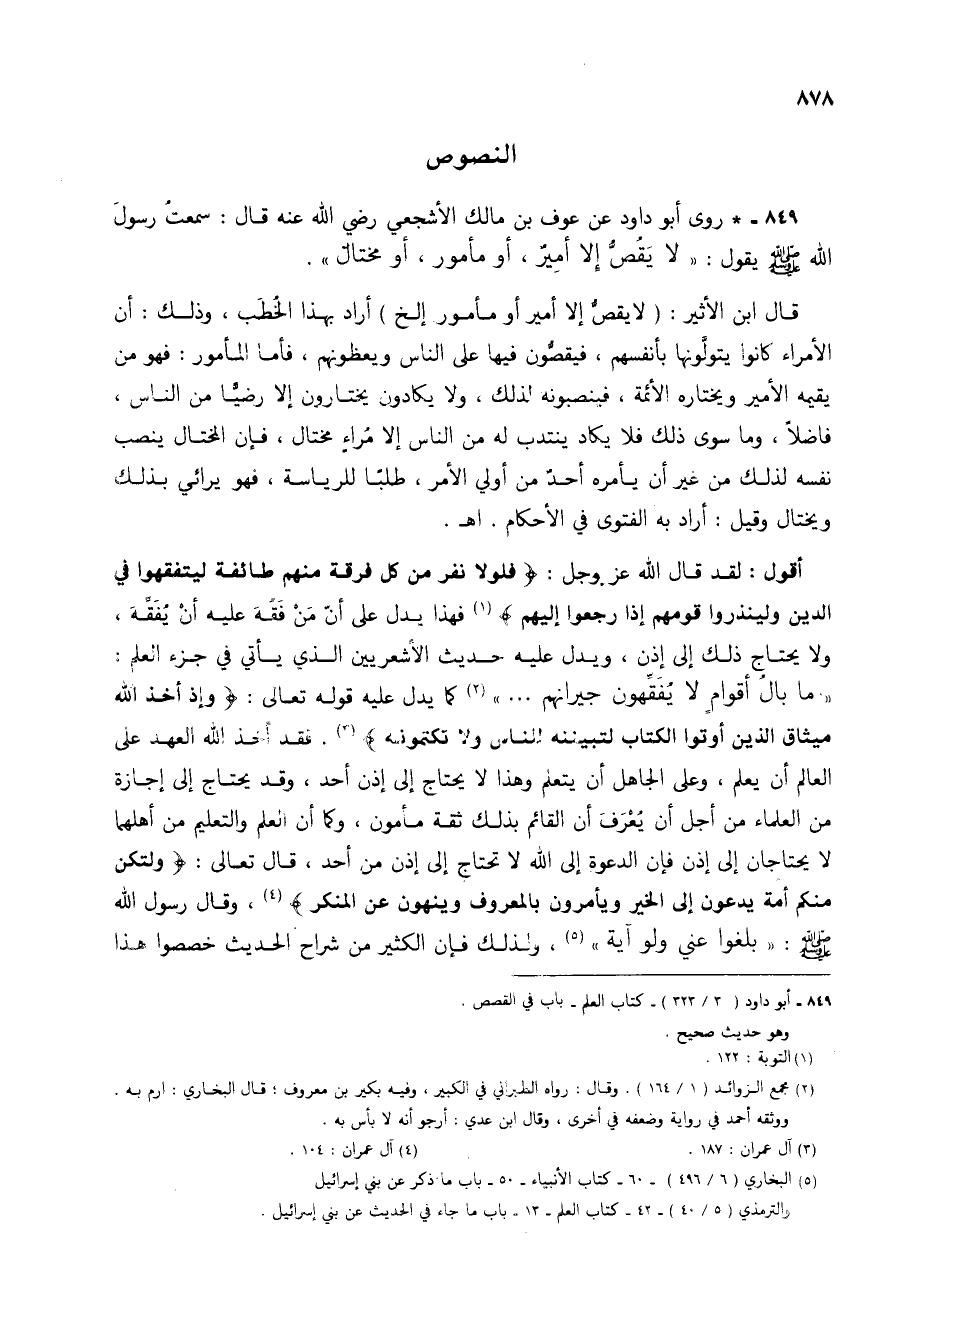 ٨٧٨
النصوص
٨٤٩ ـ * روى أبو داود عن عوف بن مالك الأشجعي رضي الله عنه قال : سمعتُ رسولَ
الله ﷺ يقول : « لا يَقُصُّ إلا أميرٌ ، أو مأمور ، أو مختال » .
قال ابن الأثير : ( لايقصُّ إلا أمير أو مأمور إلخ ) أراد بهذا الخُطَب ، وذلك : أن
الأمراء كانوا يتولَّونها بأنفسهم ، فيقصُّون فيها على الناس ويعظونهم ، فأما المأمور : فهو من
يقيمه الأمير ويختاره الأئمة ، فينصبونه لذلك ، ولا يكادون يختارون إلا رضيًّا من الناس ،
فاضلاً ، وما سوى ذلك فلا يكاد ينتدب له من الناس إلا مُراءٍ مختال ، فإن المختال ينصب
نفسه لذلك من غير أن يأمره أحدٌ من أولي الأمر ، طلبًا للرياسة ، فهو يرائي بذلك
ويختال وقيل : أراد به الفتوى في الأحكام . اهـ .
أقول : لقد قال الله عز وجل : ﴿ فلولا نفر من كل فرقة منهم طائفة ليتفقهوا في
الدين ولينذروا قومهم إذا رجعوا إليهم ﴾ (١) فهذا يدل على أنّ مَنْ فَقُهَ عليه أنْ يُفَقِّهَ ،
ولا يحتاج ذلك إلى إذن ، ويدل عليه حديث الأشعريين الذي يأتي في جزء العلم :
« ما بالُ أقوامٍ لا يُفَقِّهون جيرانهم ... » (٢) كما يدل عليه قوله تعالى : ﴿ وإذ أخذ الله
ميثاق الذين أوتوا الكتاب لتبيننه للناس ولا تكتمونه ﴾ (٣) . فقد أخذ الله العهد على
العالم أن يعلم ، وعلى الجاهل أن يتعلم وهذا لا يحتاج إلى إذن أحد ، وقد يحتاج إلى إجازة
من العلماء من أجل أن يُعْرَفَ أن القائم بذلك ثقة مأمون ، وكما أن العلم والتعليم من أهلهما
لا يحتاجان إلى إذن فإن الدعوة إلى الله لا تحتاج إلى إذن من أحد ، قال تعالى : ﴿ ولتكن
منكم أمة يدعون إلى الخير ويأمرون بالمعروف وينهون عن المنكر ﴾ (٤) ، وقال رسول الله
ﷺ : « بلغوا عني ولو آية » (٥) ، ولذلك فإن الكثير من شراح الحديث خصصوا هذا
٨٤٩ ـ أبو داود ( ٣ / ٣٢٣ ) ـ كتاب العلم ـ باب في القصص .
وهو حديث صحيح .
(١) التوبة : ١٢٢ .
(٢) مجمع الزوائد ( ١ / ١٦٤ ) . وقال : رواه الطبراني في الكبير ، وفيه بكير بن معروف ؛ قال البخاري : ارم به .
ووثقه أحمد في رواية وضعفه في أخرى ، وقال ابن عدي : أرجو أنه لا بأس به .
(٣) آل عمران : ١٨٧ . (٤) آل عمران : ١٠٤ .
(٥) البخاري ( ٦ / ٤٩٦ ) ـ ٦٠ ـ كتاب الأنبياء ـ ٥٠ ـ باب ما ذكر عن بني إسرائيل
والترمذي ( ٥ / ٤٠ ) ـ ٤٢ ـ كتاب العلم ـ ١٣ ـ باب ما جاء في الحديث عن بني إسرائيل .